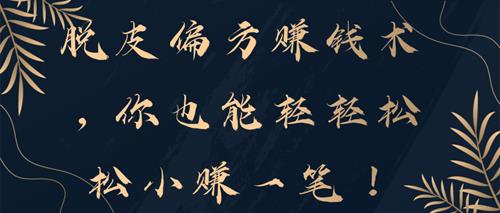 脱皮偏方赚钱术
，你也能轻轻松
松小赚一笔！